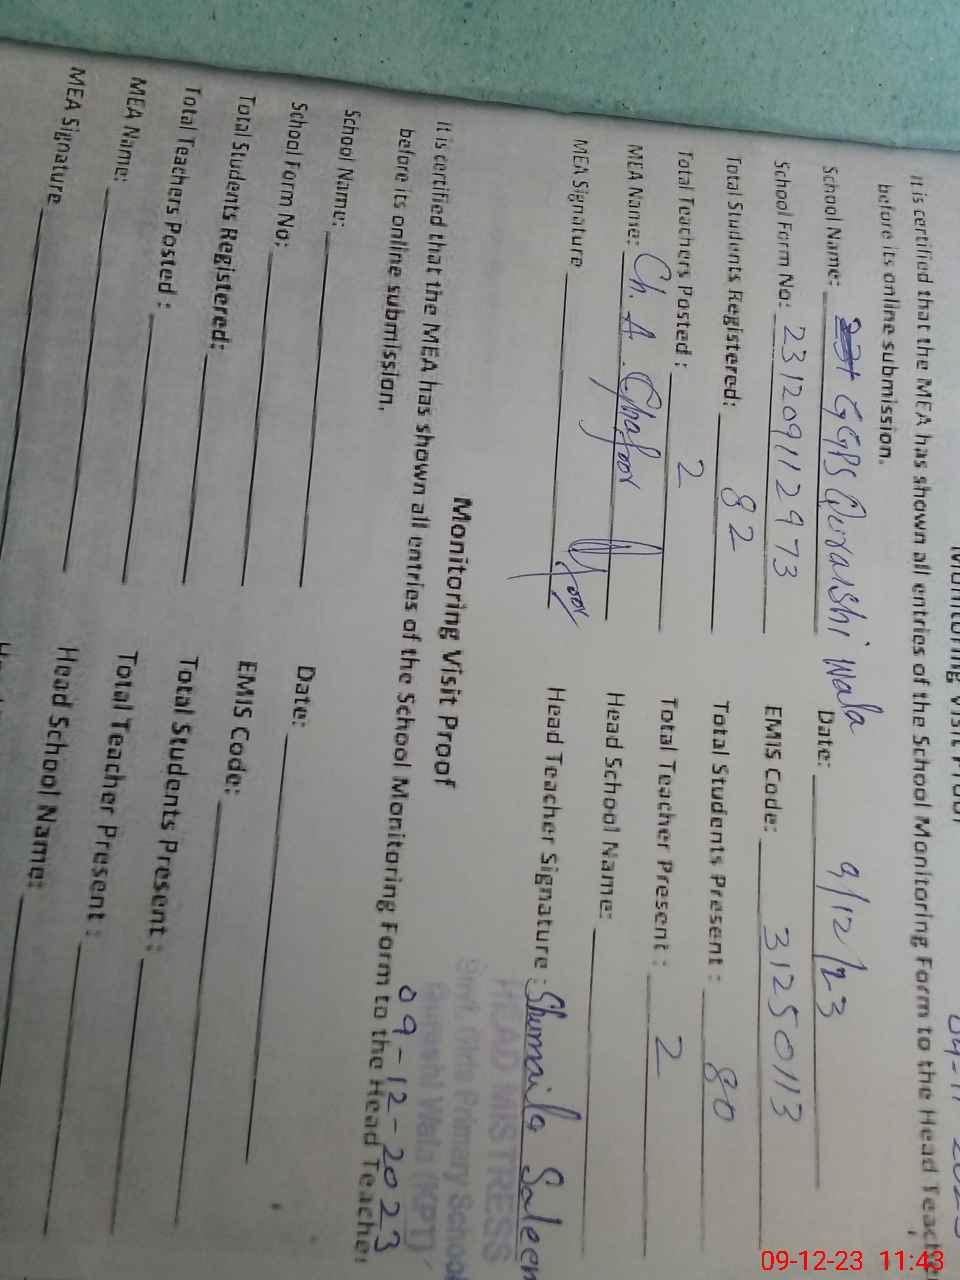 Monitoring Visit Proof
It is certified that the MEA has shown all entries of the School Monitoring Form to the Head Teacher
before its online submission.
School Name: GGPS Quraishi Wala Date: 9/12/23
School Form No: 231209112973 EMIS Code: 31250113
Total Students Registered: 82 Total Students Present : 80
Total Teachers Posted : 2 Total Teacher Present : 2
MEA Name: Ch. A. Ghafoor Head School Name:
MEA Signature Head Teacher Signature : Shumaila Saleem
HEAD MISTRESS
Govt. Girls Primary School
Quraishi Wala (KPT)
09-12-2023
Monitoring Visit Proof
It is certified that the MEA has shown all entries of the School Monitoring Form to the Head Teacher
before its online submission.
School Name: Date:
School Form No: EMIS Code:
Total Students Registered: Total Students Present :
Total Teachers Posted : Total Teacher Present :
MEA Name: Head School Name:
MEA Signature
09-12-23 11:43